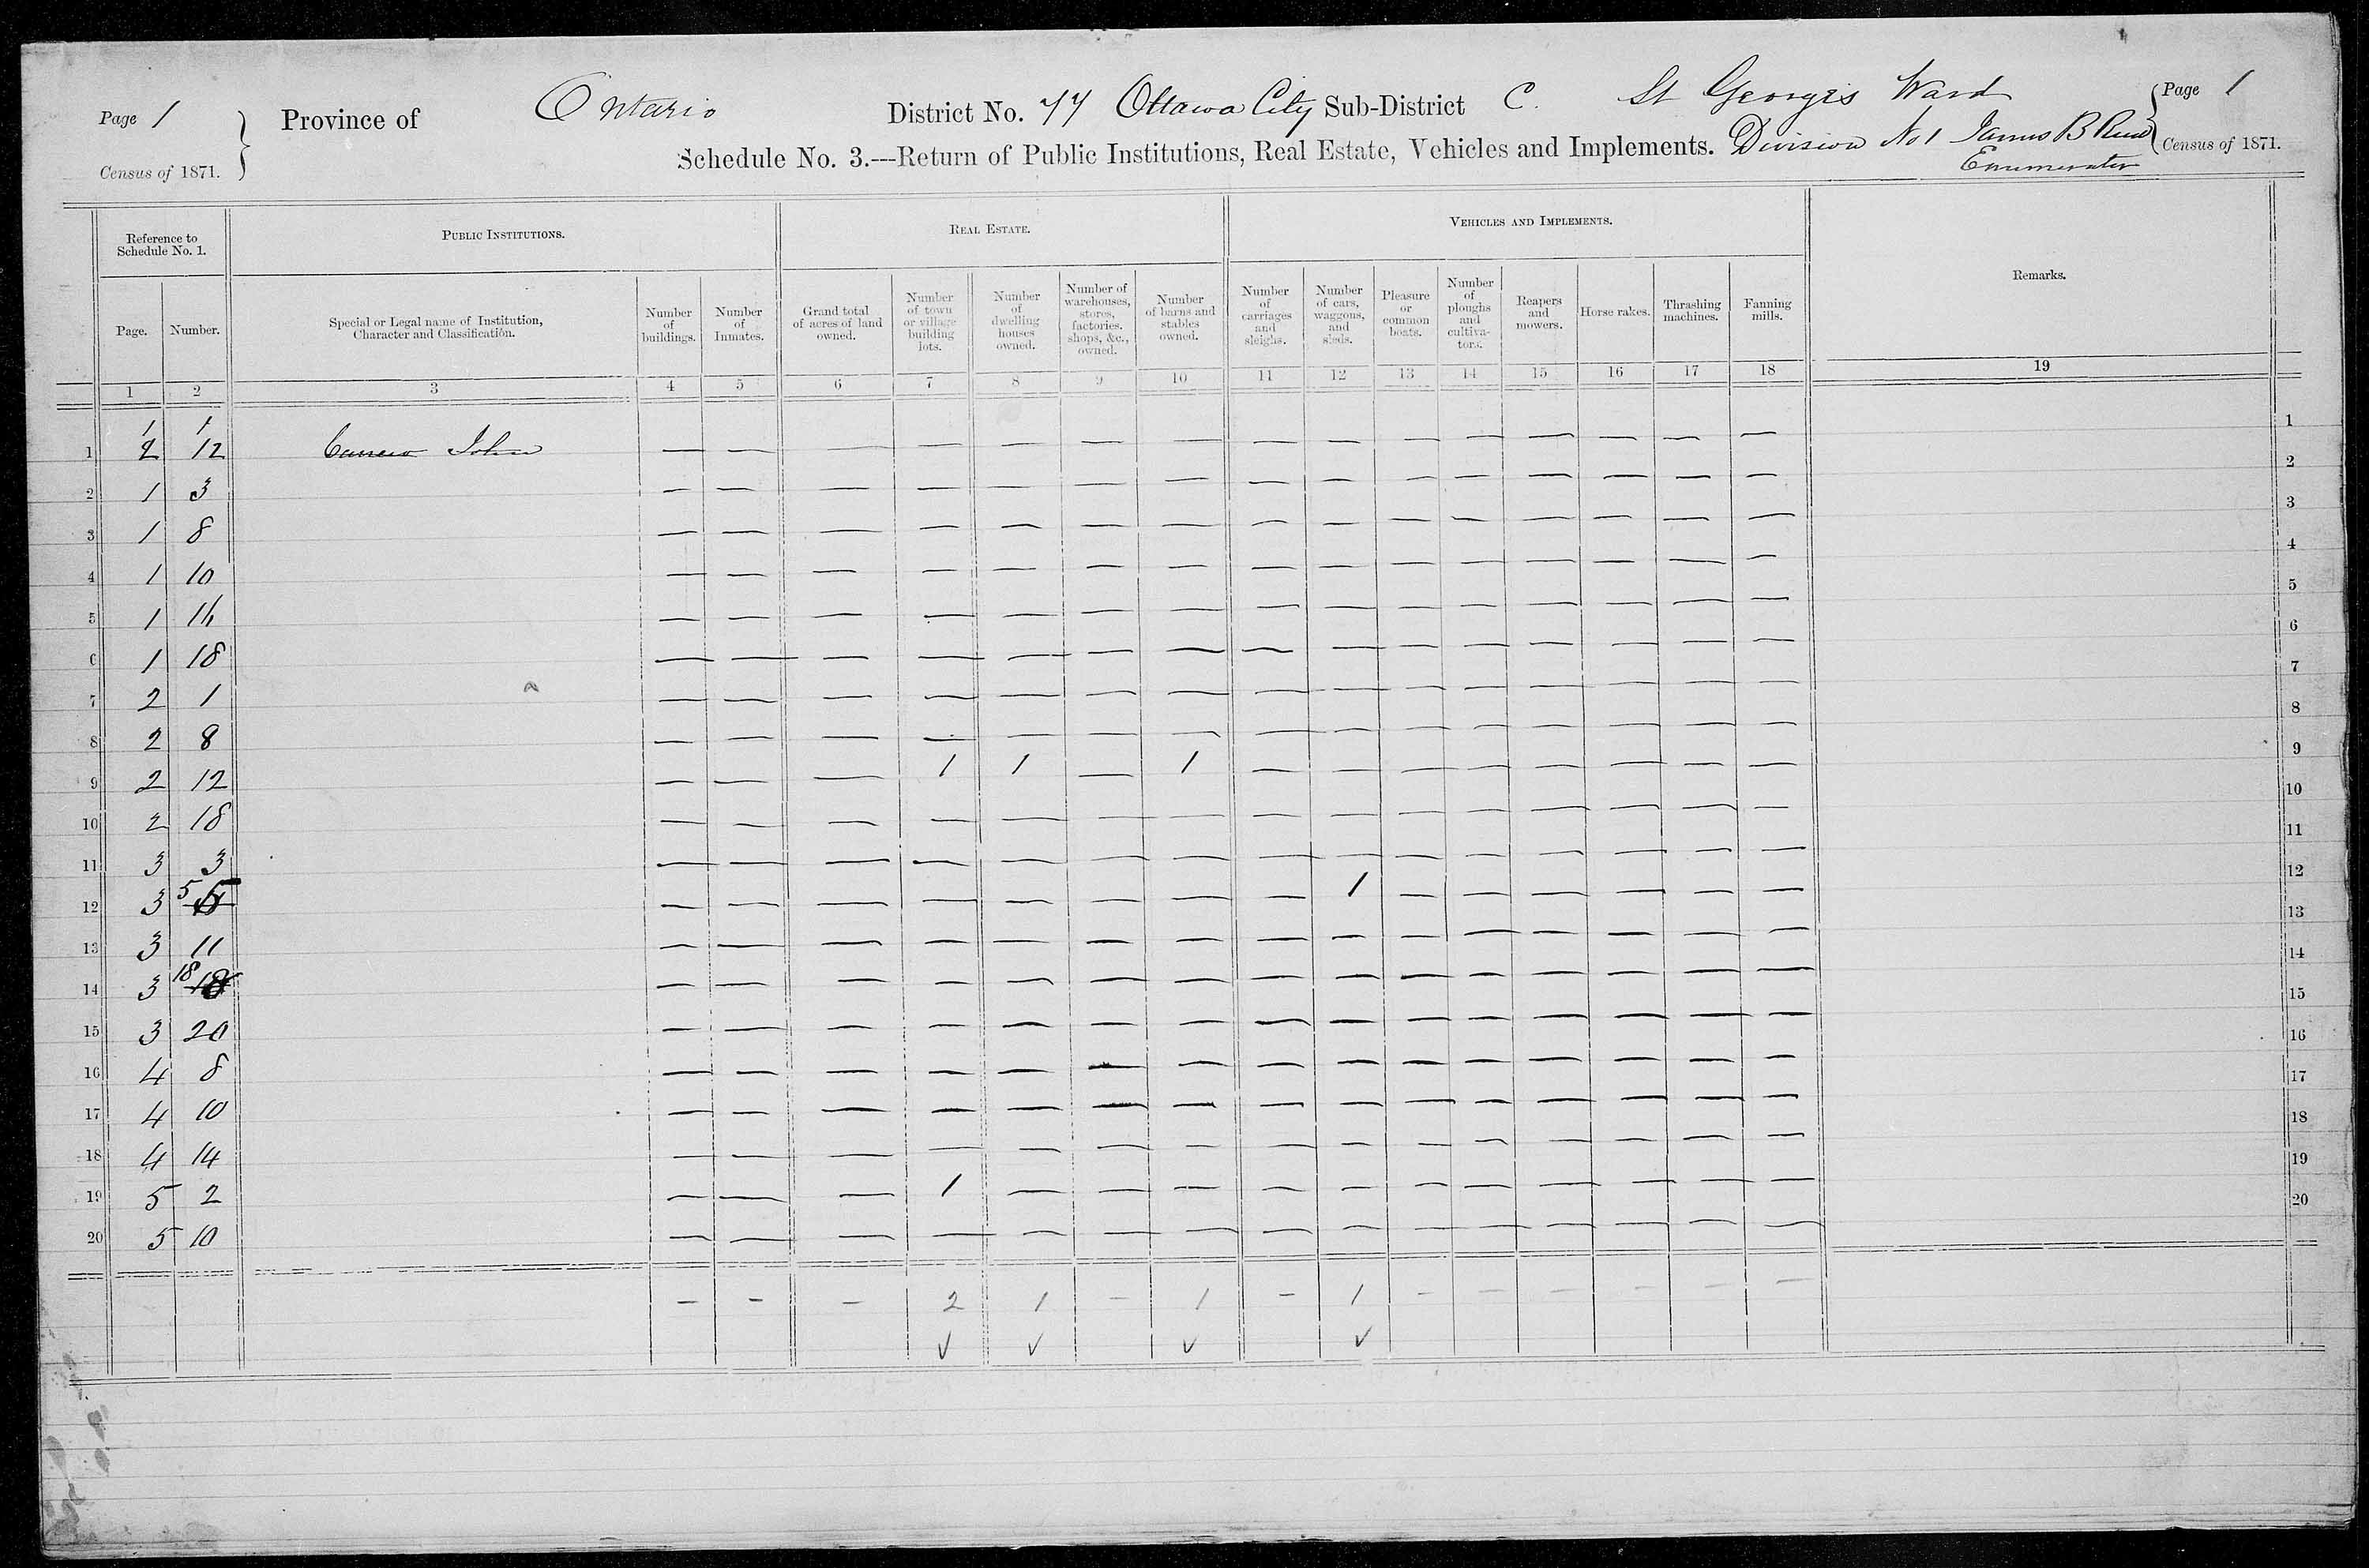 Page 1 Province of Ontario District No. 77 Ottawa City Sub-District C. St Georges Ward Page 1
Census of 1871. Schedule No. 3.---Return of Public Institutions, Real Estate, Vehicles and Implements. Division No 1 James B Census of 1871.
Enumerator
Reference to Schedule No. 1. PUBLIC INSTITUTIONS. REAL ESTATE. VEHICLES AND IMPLEMENTS. Remarks.
Page. Number. Special or Legal name of Institution, Character and Classification. Number of buildings. Number of Inmates. Grand total of acres of land owned. Number of town or village building lots. Number of dwelling houses owned. Number of warehouses, stores, factories. shops, &c., owned. Number of barns and stables owned. Number of carriages and sleighs. Number of cars, waggons, and sleds. Pleasure or common boats. Number of ploughs and cultivators. Reapers and mowers. Horse rakes. Thrashing machines. Fanning mills.
1 2 3 4 5 6 7 8 9 10 11 12 13 14 15 16 17 18 19
1 1
1 2 12 John — — — — — — — — — — — — — — — 1
2 1 3 — — — — — — — — — — — — — — — 2
3 1 8 — — — — — — — — — — — — — — — 3
4 1 10 — — — — — — — — — — — — — — — 4
5 1 — — — — — — — — — — — — — — — 5
6 1 18 — — — — — — — — — — — — — — — 6
7 2 1 — — — — — — — — — — — — — — — 7
8 2 8 — — — — — — — — — — — — — — — 8
9 2 12 — — — 1 1 — 1 — — — — — — — — 9
10 2 18 — — — — — — — — — — — — — — — 10
11 3 3 — — — — — — — — — — — — — — — 11
12 3 5 — — — — — — — — 1 — — — — — — 12
13 3 11 — — — — — — — — — — — — — — — 13
14 3 18 18 — — — — — — — — — — — — — — — 14
15 3 20 — — — — — — — — — — — — — — — 15
16 4 8 — — — — — — — — — — — — — — — 16
17 4 10 — — — — — — — — — — — — — — — 17
18 4 14 — — — — — — — — — — — — — — — 18
19 5 2 — — — 1 — — — — — — — — — — — 19
20 5 10 — — — — — — — — — — — — — — — 20
— — — 2 1 — 1 — 1 — — — — — —
✓ ✓ ✓ ✓